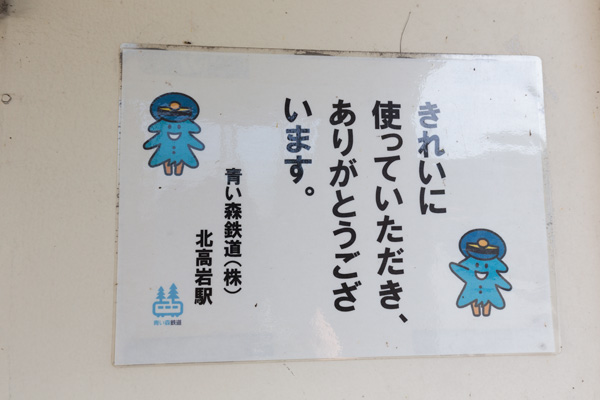 きれいに
使っていただき、
ありがとうござ
います。
青い森鉄道（株）
北高岩駅
青い森鉄道